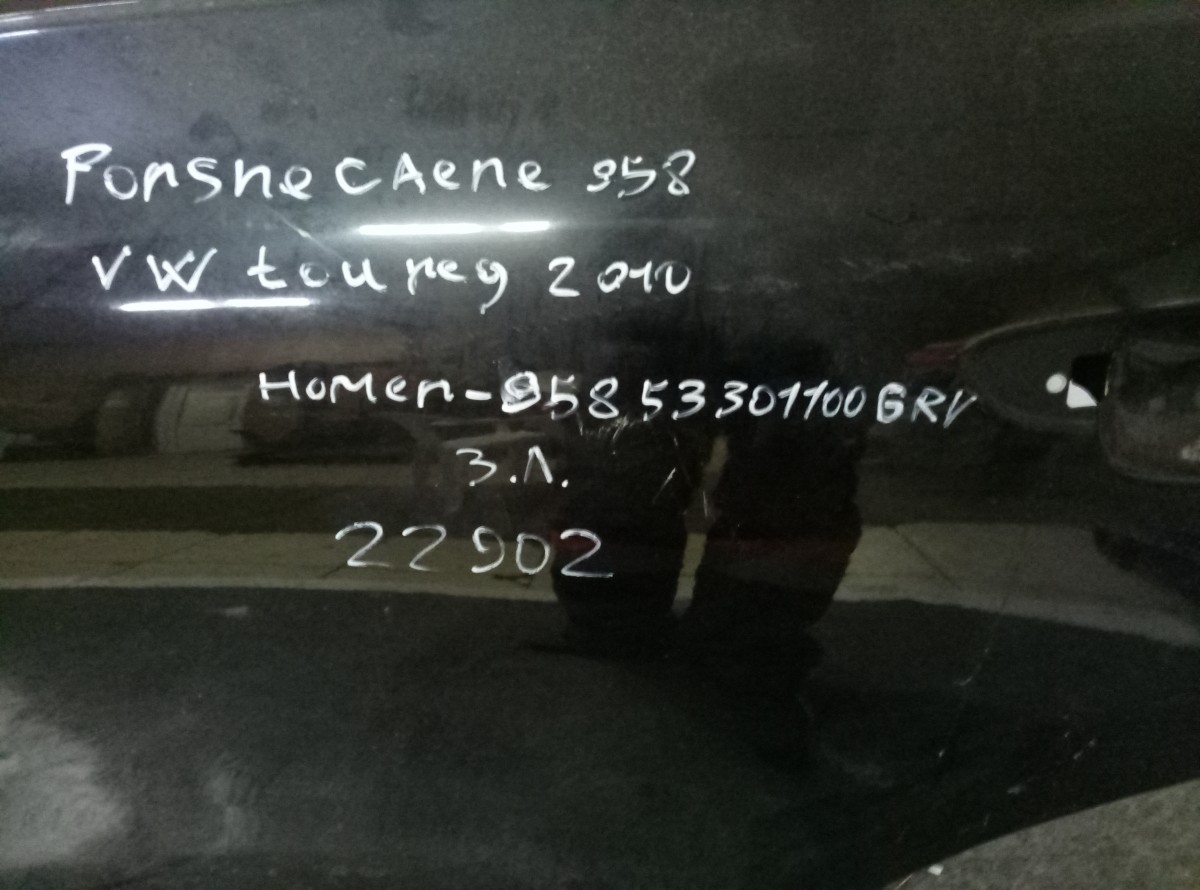 Porshe CAene 958
VW toureg 2010
Номер-95853301100GRV
З.Л.
22902